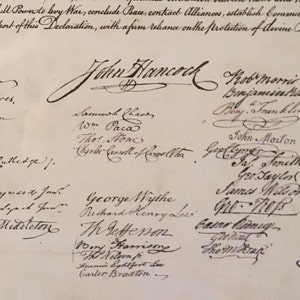 full Power to levy War, conclude Peace, contract Alliances, establish Commerce
port of this Declaration, with a firm reliance on the protection of divine
John Hancock
Samuel Chase
Wm Paca
Thos Stone
Charles Carroll of Carrollton
George Wythe
Richard Henry Lee
Th Jefferson
Benj Harrison
Thos Nelson jr
Francis Lightfoot Lee
Carter Braxton
Middleton
Robt Morris
Benjamin
Benj Franklin
John Morton
Geo Clymer
Jas Smith
Geo Taylor
James Wilson
Geo Ross
Caesar Rodney
Geo Read
Tho M:Kean